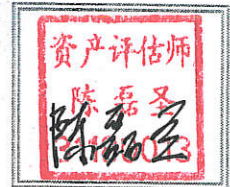 资产评估师
陈磊圣
陈磊圣